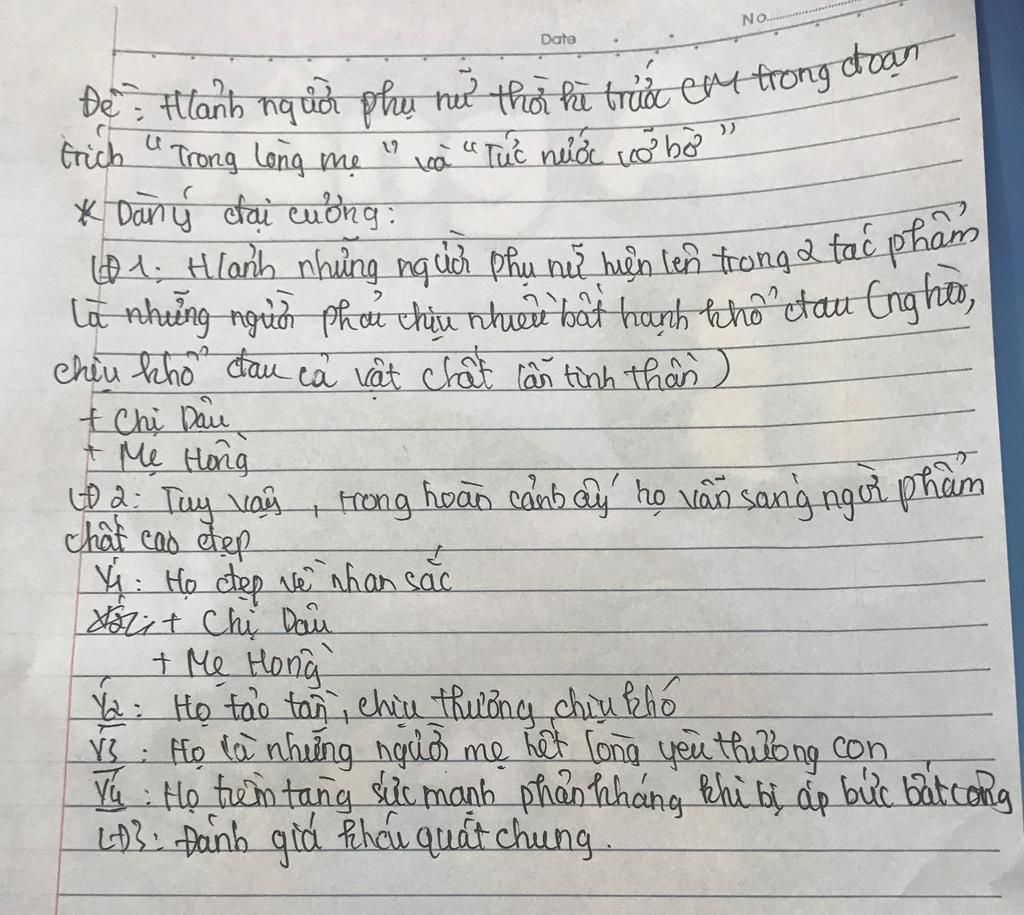 No
Date
Đề: H/ảnh người phụ nữ thời kì trước CM trong đoạn
trích "Trong lòng mẹ" và "Tức nước vỡ bờ"
* Dàn ý đại cương:
LĐ 1: H/ảnh những người phụ nữ hiện lên trong 2 tác phẩm
là những người phải chịu nhiều bất hạnh khổ đau (nghèo,
chịu khổ đau cả vật chất lẫn tinh thần)
+ Chị Dậu
+ Mẹ Hồng
LĐ 2: Tuy vậy, trong hoàn cảnh ấy họ vẫn sáng ngời phẩm
chất cao đẹp
Ý1: Họ đẹp về nhan sắc
+ Chị Dậu
+ Mẹ Hồng
Ý2: Họ tảo tần, chịu thương chịu khó
Ý3: Họ là những người mẹ hết lòng yêu thương con
Ý4: Họ tiềm tàng sức mạnh phản kháng khi bị áp bức bất công
LĐ3: Đánh giá khái quát chung.